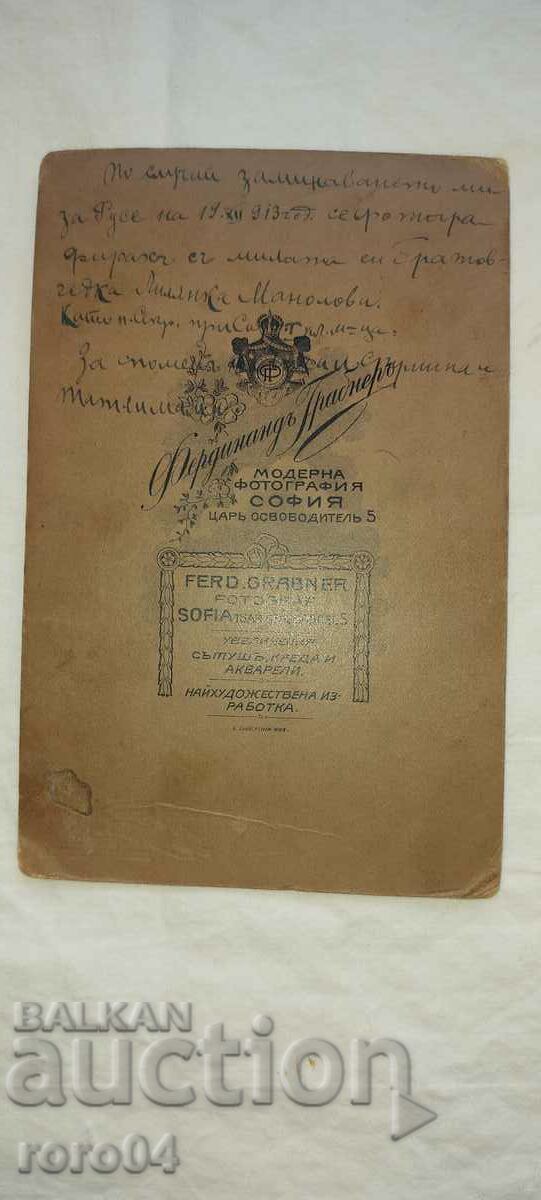 По случай заминаването ми
за Русе на 19 XII 913 год. се фотогра-
фирахъ съ милата си братов-
чедка Лилянка Манолова.
Като
За споменъ
Фердинандъ Грабнеръ
МОДЕРНА
ФОТОГРАФИЯ
СОФИЯ
ЦАРЬ ОСВОБОДИТЕЛЬ 5
FERD. GRABNER
FOTOGRAF
SOFIA
УВЕЛИЧЕНИЯ
СЪ ТУШЪ, КРЕДА И
АКВАРЕЛИ.
НАЙХУДОЖЕСТВЕНА ИЗ-
РАБОТКА.
BALKAN
auction
roro04